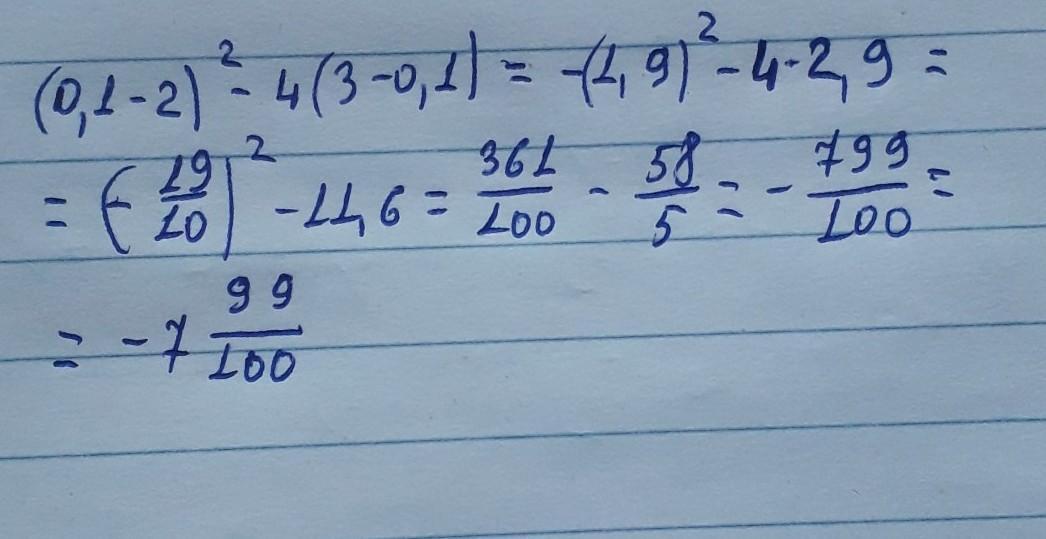 (0,1-2)² - 4(3-0,1) = -(1,9)² - 4·2,9 =
= (-19/10)² - 11,6 = 361/100 - 58/5 = - 799/100 =
= -7 99/100